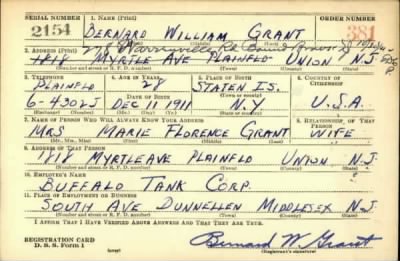 SERIAL NUMBER 1. NAME (Print) ORDER NUMBER
2154 BERNARD WILLIAM GRANT 381
(First) (Middle) (Last)
2. ADDRESS (Print)
1818 MYRTLE AVE PLAINFLD UNION N.J.
(Number and street or R. F. D. number) (Town) (County) (State)
3. TELEPHONE 4. AGE IN YEARS 5. PLACE OF BIRTH 6. COUNTRY OF CITIZENSHIP
PLAINFLD 28 STATEN IS.
DATE OF BIRTH (Town or county)
6-4302J DEC 11 1911 N.Y. U.S.A.
(Exchange) (Number) (Mo.) (Day) (Yr.) (State or country)
7. NAME OF PERSON WHO WILL ALWAYS KNOW YOUR ADDRESS 8. RELATIONSHIP OF THAT PERSON
MRS MARIE FLORENCE GRANT WIFE
(Mr., Mrs., Miss) (First) (Middle) (Last)
9. ADDRESS OF THAT PERSON
1818 MYRTLE AVE PLAINFLD UNION N.J.
(Number and street or R. F. D. number) (Town) (County) (State)
10. EMPLOYER'S NAME
BUFFALO TANK CORP.
11. PLACE OF EMPLOYMENT OR BUSINESS
SOUTH AVE DUNNELLEN MIDDLESEX N.J.
(Number and street or R. F. D. number) (Town) (County) (State)
I AFFIRM THAT I HAVE VERIFIED ABOVE ANSWERS AND THAT THEY ARE TRUE.
REGISTRATION CARD
D. S. S. Form 1 (over) Bernard W Grant
(Registrant's signature)